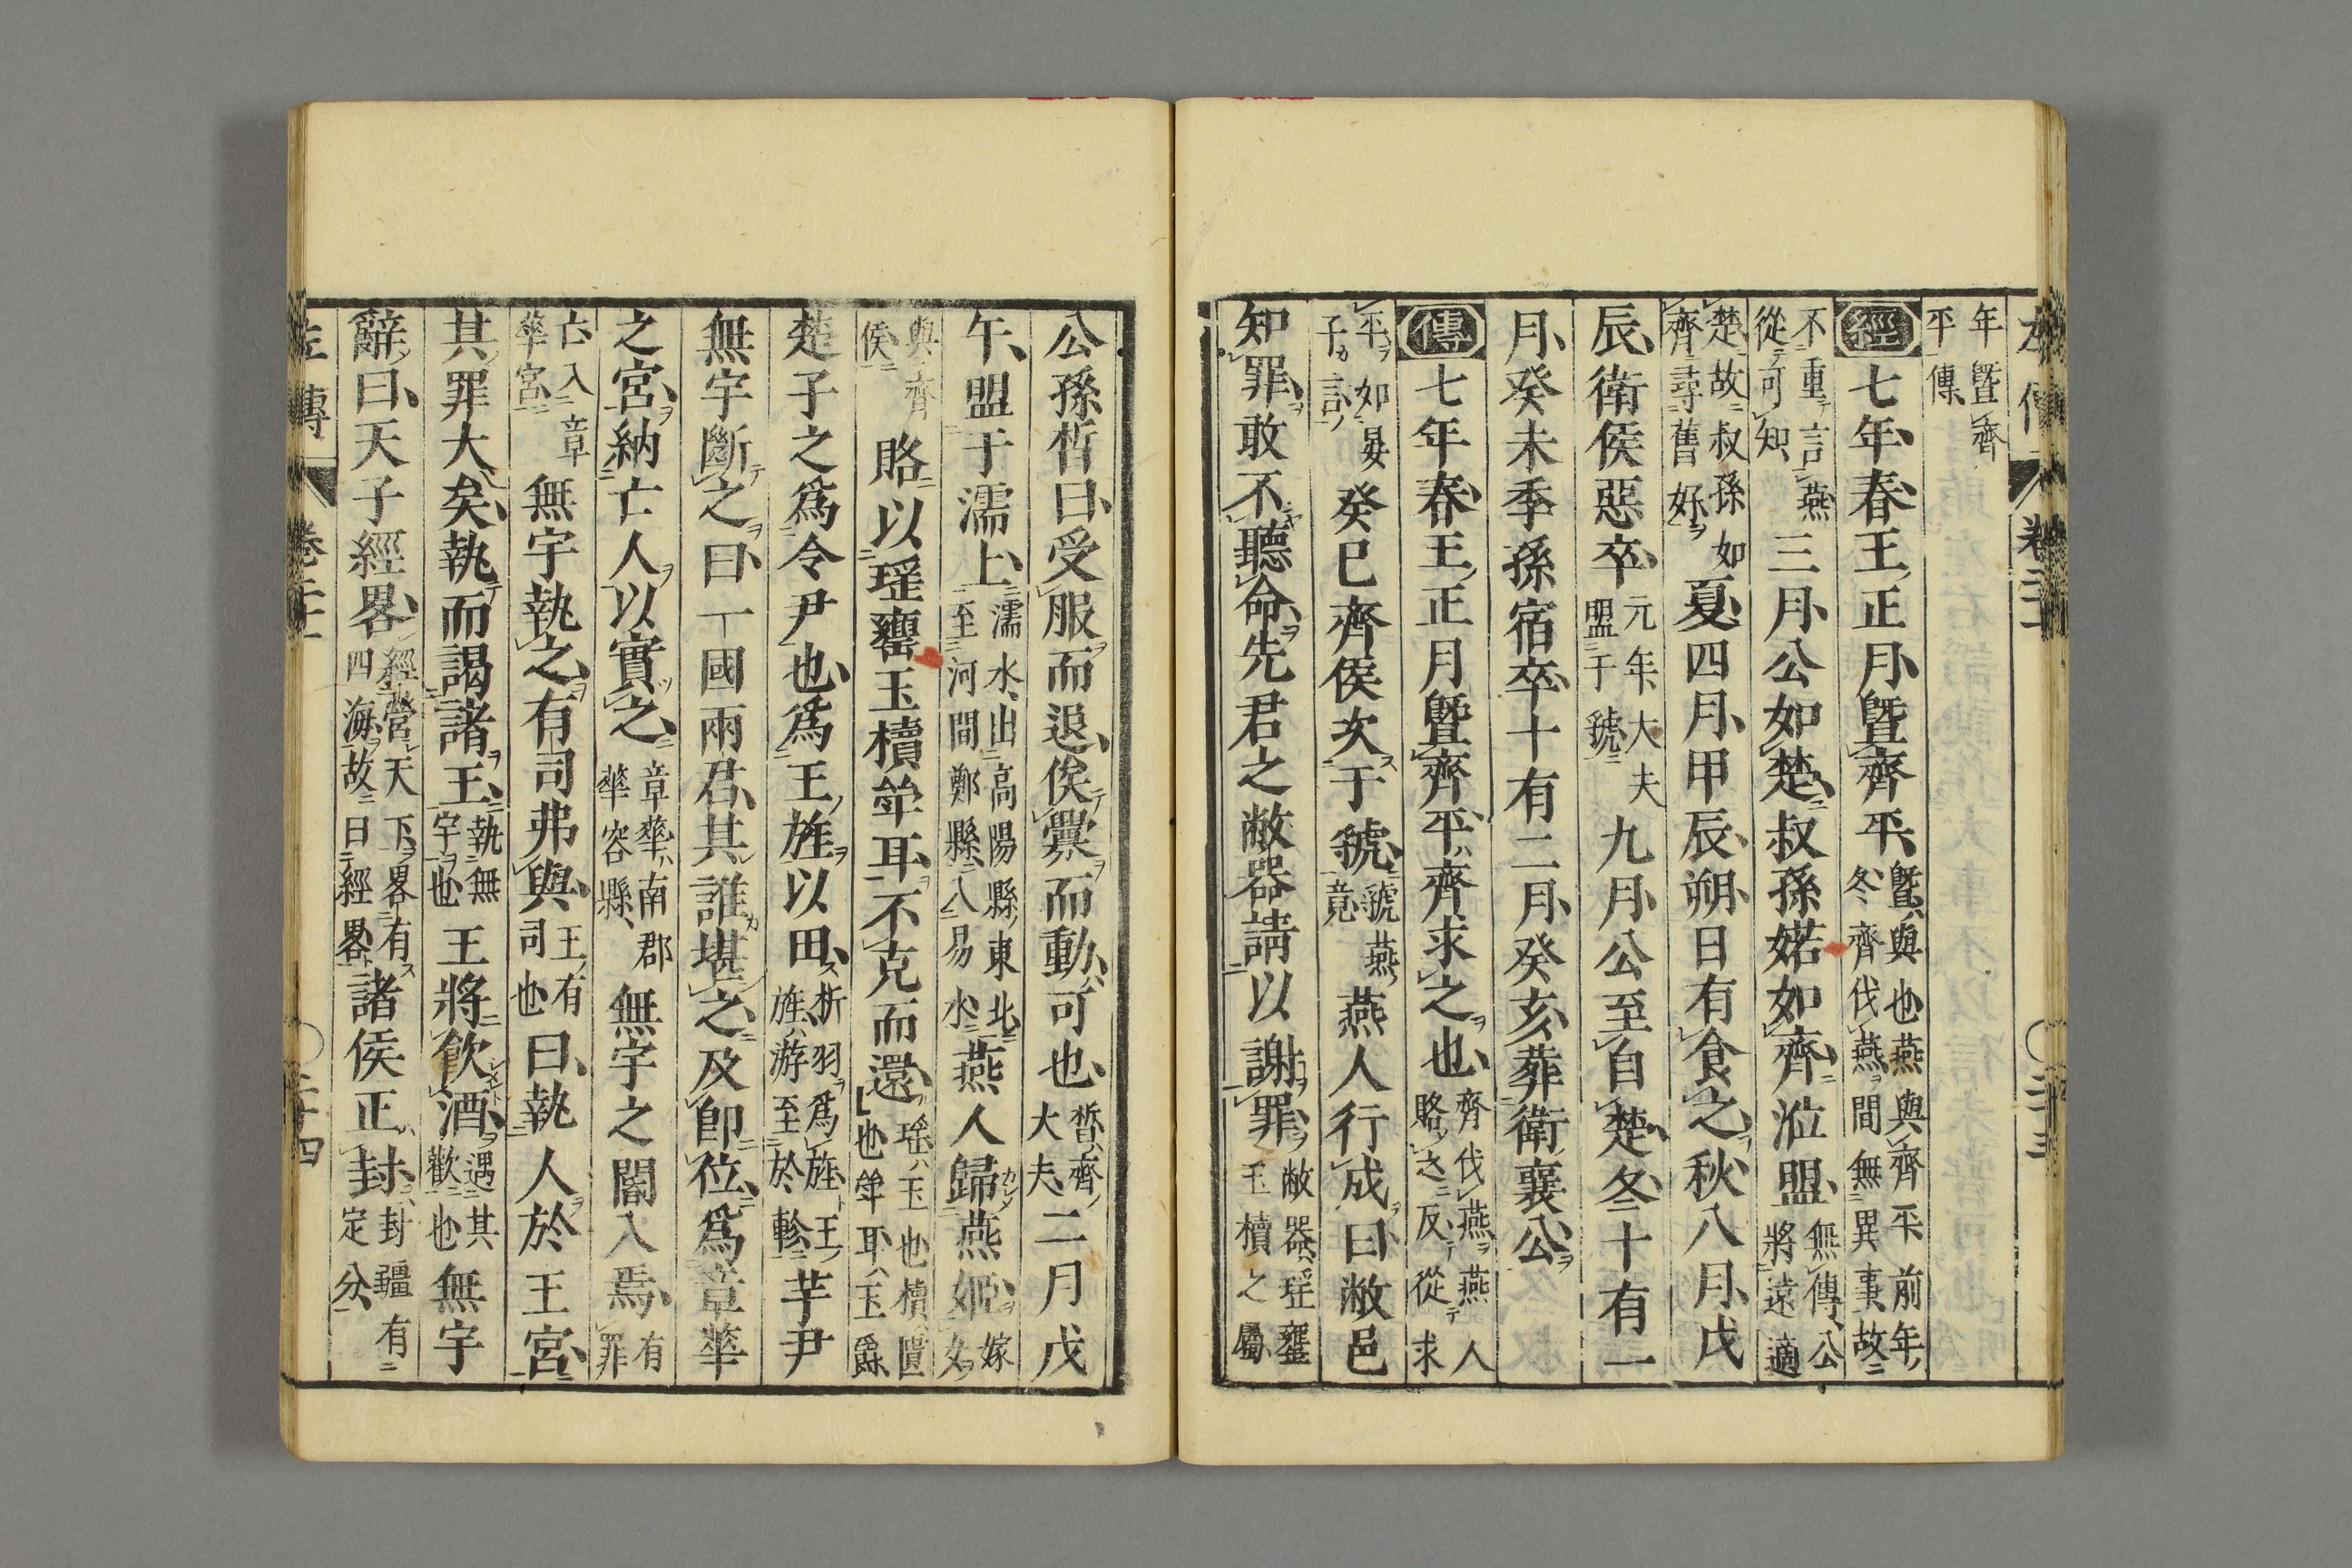 左傳 卷二十一 〇 二十三
年曁齊
平傳
經 七年春王正月曁齊平曁與也燕與齊平前年
冬齊伐燕間無異事故
不重言燕
從可知 三月公如楚叔孫婼如齊涖盟無傳公
將遠適
楚故叔孫如
齊尋舊好 夏四月甲辰朔日有食之秋八月戊
辰衛侯惡卒元年大夫
盟于虢 九月公至自楚冬十有一
月癸未季孫宿卒十有二月癸亥葬衛襄公
傳 七年春王正月曁齊平齊求之也齊伐燕燕人
賂之反從求
平如晏
子言 癸巳齊侯次于虢虢燕
竟 燕人行成曰敝邑
知罪敢不聽命先君之敝器請以謝罪敝器瑶罋
玉櫝之屬
公孫晳曰受服而退俟釁而動可也晳齊
大夫 二月戊
午盟于濡上濡水出高陽縣東北
至河間鄭縣入易水 燕人歸燕姬嫁
女
與齊
侯 賂以瑶罋玉櫝斝耳不克而還瑶玉也櫝匱
也斝耳玉爵
楚子之爲令尹也爲王旌以田析羽爲旌王
旌游至於軫 芋尹
無宇斷之曰一國兩君其誰堪之及卽位爲章華
之宮納亡人以實之章華南郡
華容縣 無宇之閽入焉有
罪
亡入章
華宮 無宇執之有司弗與王有
司也 曰執人於王宮
其罪大矣執而謁諸王執無
宇也 王將飮酒遇其
歡也 無宇
辭曰天子經畧經營天下畧有
四海故曰經畧 諸侯正封封疆有
定分
左傳 卷二十一 〇 二十四